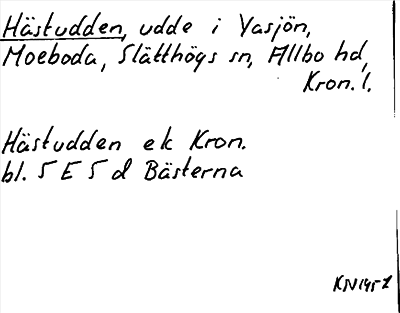 Hästudden, udde i Vasjön,
Moeboda, Slätthögs sn, Allbo hd,
Kron. l.
Hästudden ek Kron.
bl. 5 E 5 d Bästerna